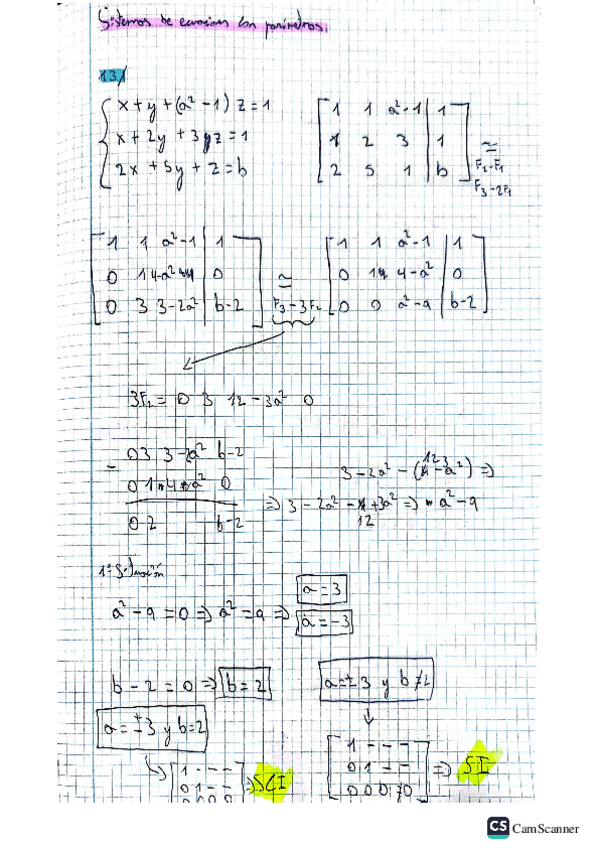 Sistemas de ecuaciones con parámetros.
13)
x + y + (a² - 1) z = 1
x + 2y + 3 z = 1
2x + 5y + z = b
1 1 a²-1 | 1
1 2 3 | 1
2 5 1 | b
≃
F₂-F₁
F₃-2F₁
1 1 a²-1 | 1
0 1 4-a² | 0
0 3 3-2a² | b-2
≃
F₃-3F₂
1 1 a²-1 | 1
0 1 4-a² | 0
0 0 a²-9 | b-2
3F₂ = 0 3 12-3a² 0
- 0 3 3-2a² b-2
0 1 4 a² 0
0 2 b-2
3-2a² - (12-3a²) =>
=> 3-2a² - 12 + 3a² => a²-9
1ª Solución
a² - 9 = 0 => a² = 9 => a = 3
a = -3
b - 2 = 0 => b = 2
a = ±3 y b = 2
1 - - -
0 1 - -
0 0 0 0
=> SCI
a = ±3 y b ≠ 2
1 - - -
0 1 - -
0 0 0 ≠0
=> SI
CS CamScanner